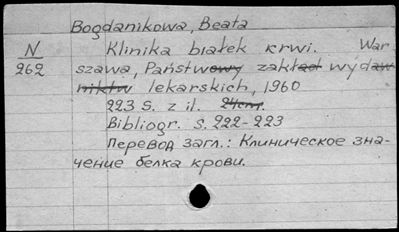 Bogdanikowa, Beata
N
262
Klinika białek krwi. War
szawa, Państwowy zakład wydaw
niktw lekarskich, 1960
223 S. z il. 24cm.
Bibliogr. S. 222-223
Перевод загл.: Клиническое зна-
чение белка крови.